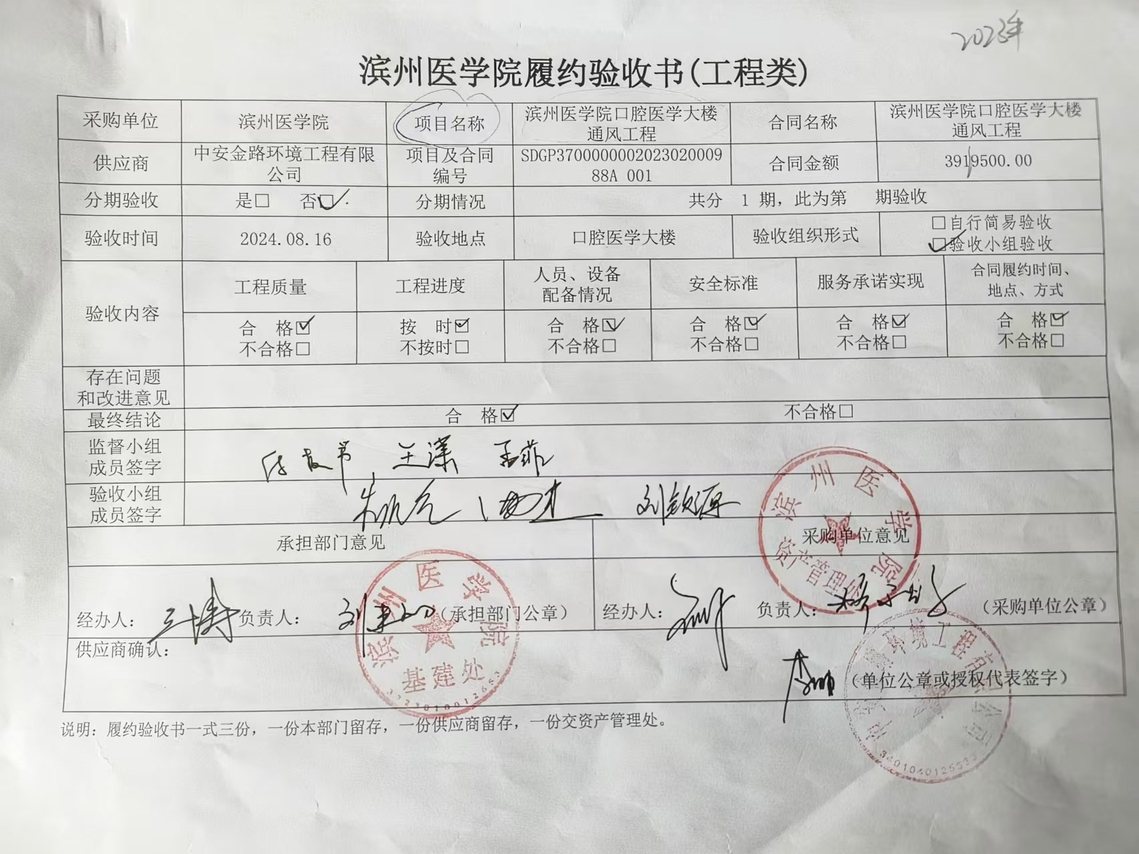 2023年
滨州医学院履约验收书(工程类)
采购单位 滨州医学院 项目名称 滨州医学院口腔医学大楼通风工程 合同名称 滨州医学院口腔医学大楼通风工程
供应商 中安金路环境工程有限公司 项目及合同编号 SDGP370000000202302000988A 001 合同金额 3919500.00
分期验收 是□ 否☑ 分期情况 共分 1 期，此为第 期验收
验收时间 2024.08.16 验收地点 口腔医学大楼 验收组织形式 □自行简易验收
☑验收小组验收
验收内容 工程质量 工程进度 人员、设备配备情况 安全标准 服务承诺实现 合同履约时间、地点、方式
合 格☑ 按 时☑ 合 格☑ 合 格☑ 合 格☑ 合 格☑
不合格□ 不按时□ 不合格□ 不合格□ 不合格□ 不合格□
存在问题
和改进意见
最终结论 合 格☑ 不合格□
监督小组
成员签字 王潆 孟菲
验收小组
成员签字 刘钦源
承担部门意见 采购单位意见
经办人： 王博 负责人： （承担部门公章） 经办人： 负责人： （采购单位公章）
滨州医学院
基建处
滨州医学院
资产管理处
供应商确认：
（单位公章或授权代表签字）
环境工程有
说明：履约验收书一式三份，一份本部门留存，一份供应商留存，一份交资产管理处。